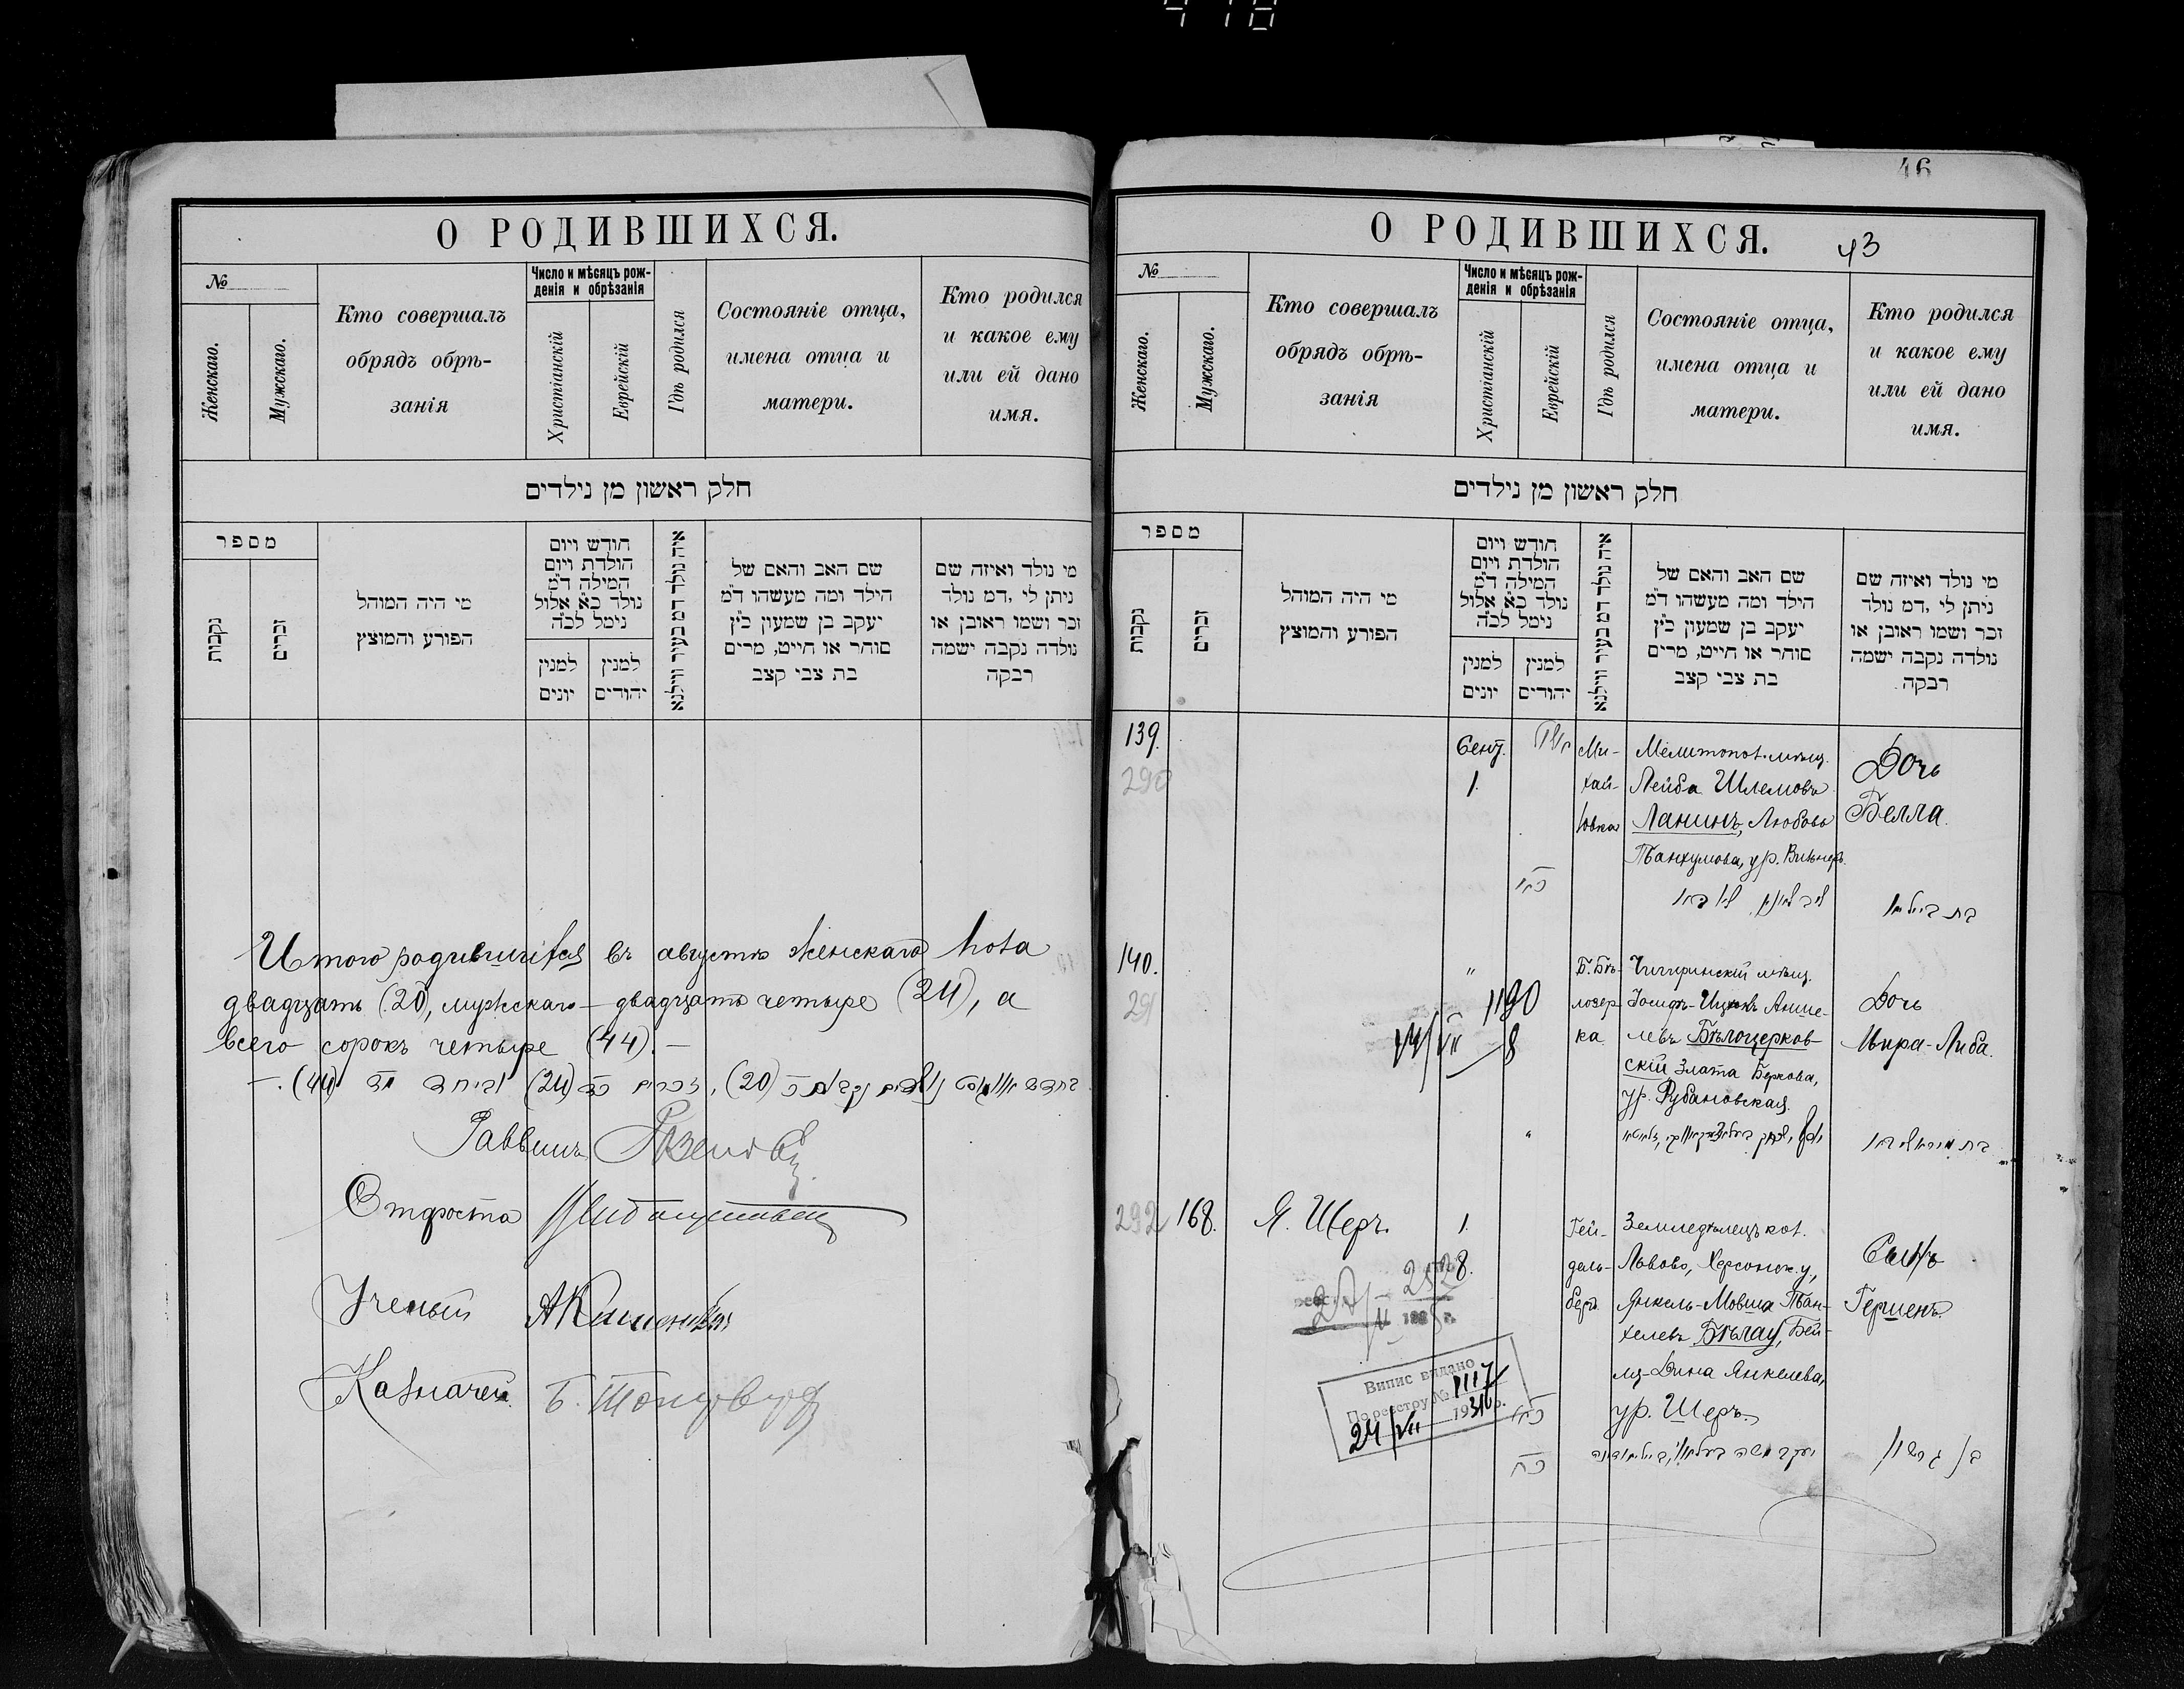 418
О РОДИВШИХСЯ.
№
Женскаго.
Мужскаго.
Кто совершалъ
обрядъ обрѣ-
занія
Число и мѣсяцъ рож-
денія и обрѣзанія
Христіанскій
Еврейскій
Гдѣ родился
Состояніе отца,
имена отца и
матери.
Кто родился
и какое ему
или ей дано
имя.
חלק ראשון מן נילדים
מספר
נקבות
זכרים
מי היה המוהל
הפורע והמוצץ
חודש ויום
הולדת ויום
המילה ד״מ
נולד כ״א אלול
נימל לכ״ה
למנין
יונים
למנין
יהודים
איה נולד דמ בעיר ווילנא
שם האב והאם של
הילד ומה מעשהו ד״מ
יעקב בן שמעון כ״ץ
סוחר או חייט, מרים
בת צבי קצב
מי נולד ואיזה שם
ניתן לי ,דמ נולד
זכר ושמו ראובן או
נולדה נקבה ישמה
רבקה
Итого родившихся въ августѣ женскаго пола
двадцать (20), мужскаго – двадцать четыре (24), а
всего сорокъ четыре (44). –
Раввинъ
Староста
Ученый
Казначей
46
О РОДИВШИХСЯ.
43
№
Женскаго.
Мужскаго.
Кто совершалъ
обрядъ обрѣ-
занія
Число и мѣсяцъ рож-
денія и обрѣзанія
Христіанскій
Еврейскій
Гдѣ родился
Состояніе отца,
имена отца и
матери.
Кто родился
и какое ему
или ей дано
имя.
חלק ראשון מן נילדים
מספר
נקבות
זכרים
מי היה המוהל
הפורע והמוצץ
חודש ויום
הולדת ויום
המילה ד״מ
נולד כ״א אלול
נימל לכ״ה
למנין
יונים
למנין
יהודים
איה נולד דמ בעיר ווילנא
שם האב והאם של
הילד ומה מעשהו ד״מ
יעקב בן שמעון כ״ץ
סוחר או חייט, מרים
בת צבי קצב
מי נולד ואיזה שם
ניתן לי ,דמ נולד
זכר ושמו ראובן או
נולדה נקבה ישמה
רבקה
139.
290
Сент.
1.
Ми-
хай-
ловка
Мелитопол. мѣщ.
Лейба Шлемовъ
Ланинъ, Любовь
Танхумова, ур.
Дочь
Белла.
140.
291
"
1190
Б. Бѣ-
лозер-
ка
Чигиринскій мѣщ.
Іосифъ-Ицхокъ Анше-
левъ Бѣлоцерков-
скій Злата Беркова,
ур. Рубановская.
Дочь
Мира-Либа.
292
168.
Я. Шеръ.
1.
8.
Гей-
дель-
берг.
Земледѣлецъ кол.
Львово, Херсонск. у,
Янкель-Мовша Тан-
хелевъ Бѣлау, Бей-
ля-Дина Янкелева,
ур. Шеръ.
Сынъ
Гершенъ.
Випис видано
По реєстру № 1117
24/VII 1936 р.